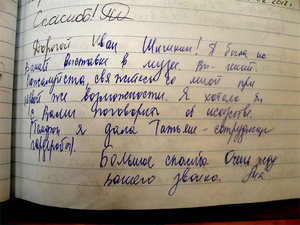 2012
Спасибо!
Дорогой Иван Шишкин! Я была на
вашей выставке в музее. Вы - гений.
Пожалуйста, свяжитесь со мной при
первой же возможности. Я хотела бы
с Вами поговорить об искусстве.
Телефон я дала Татьяне - сотруднице
гардероба.
Большое спасибо. Очень жду
вашего звонка.